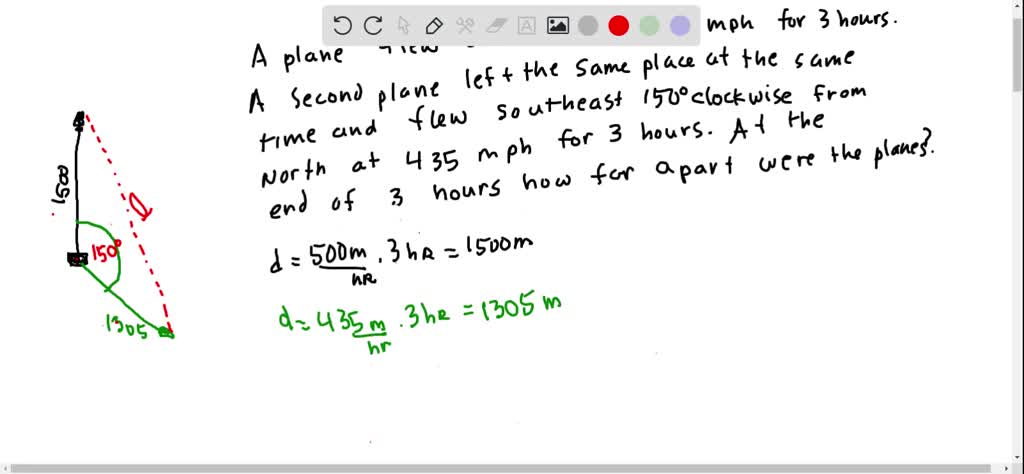 A plane flew mph for 3 hours.
A second plane left the same place at the same
time and flew southeast 150° clockwise from
North at 435 mph for 3 hours. At the
end of 3 hours how far apart were the planes?
1500
d
150°
1305
d = 500m/hR . 3hR = 1500m
d = 435m/hr . 3hR = 1305m